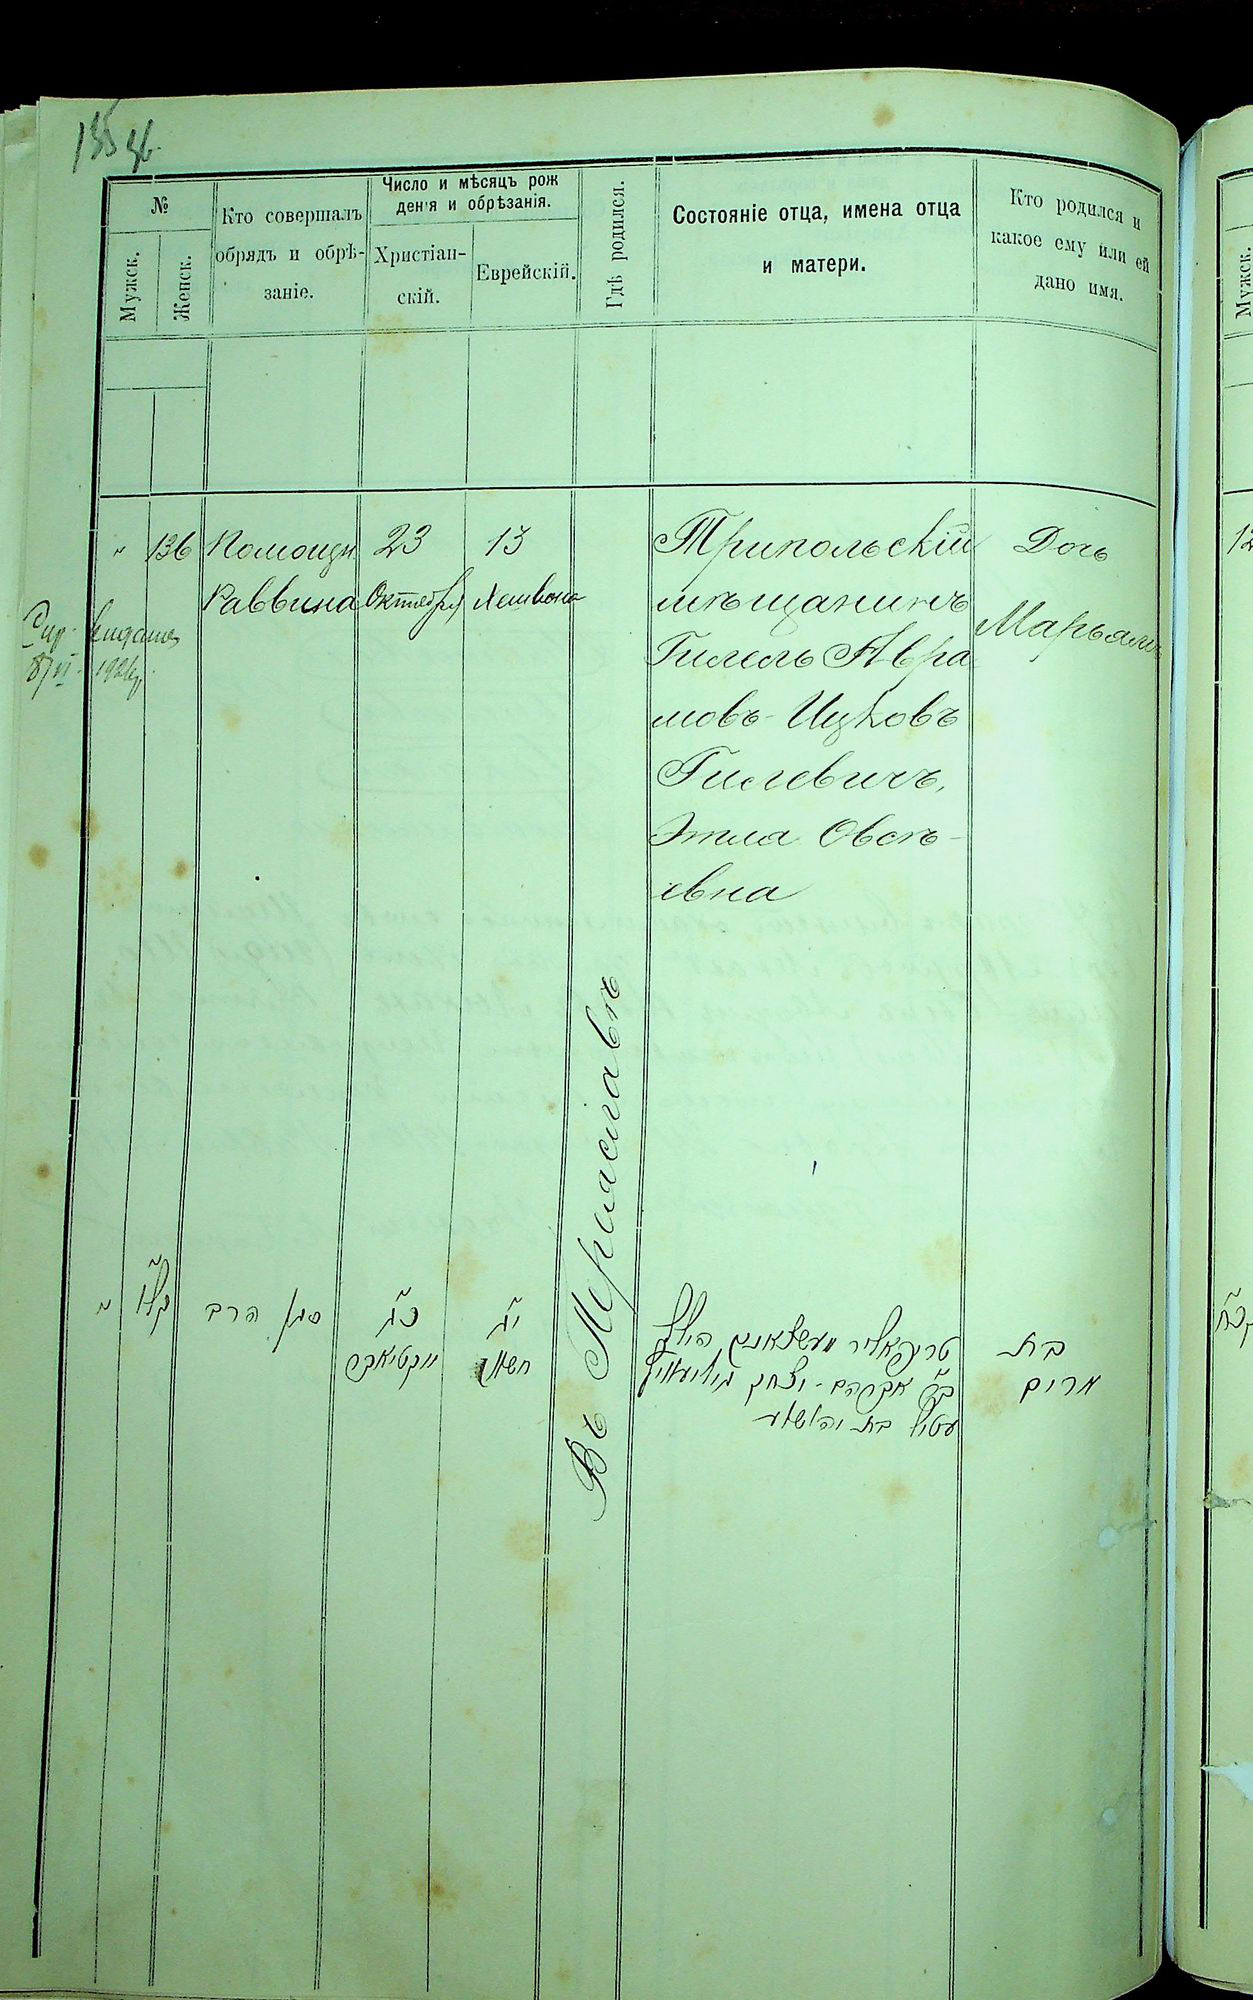 №
Мужск.
Женск.
Кто совершалъ
обрядъ и обрѣ-
заніе.
Число и мѣсяцъ рож
ден'я и обрѣзанія.
Христіан-
скій.
Еврейскій.
Гдѣ родился.
Состояніе отца, имена отца
и матери.
Кто родился и
какое ему или ей
дано имя.
"
136
Помощн.
Раввина
23
Октября
13
Хешвона
Въ Переяславѣ
Трипольскій
мѣщанинъ
Гилель Авра
мовъ-Ицковъ
Гилевичъ,
Этла Овсѣ-
евна
Дочь
Марьямъ
1926
"
קל"ו
סגן הרב
כ"ג
אקטיאבר
י"ג
חשון
הילל
ב"ר אברהם-יצחק
עטיל בת יהושע
בת
מרים
Мужск.